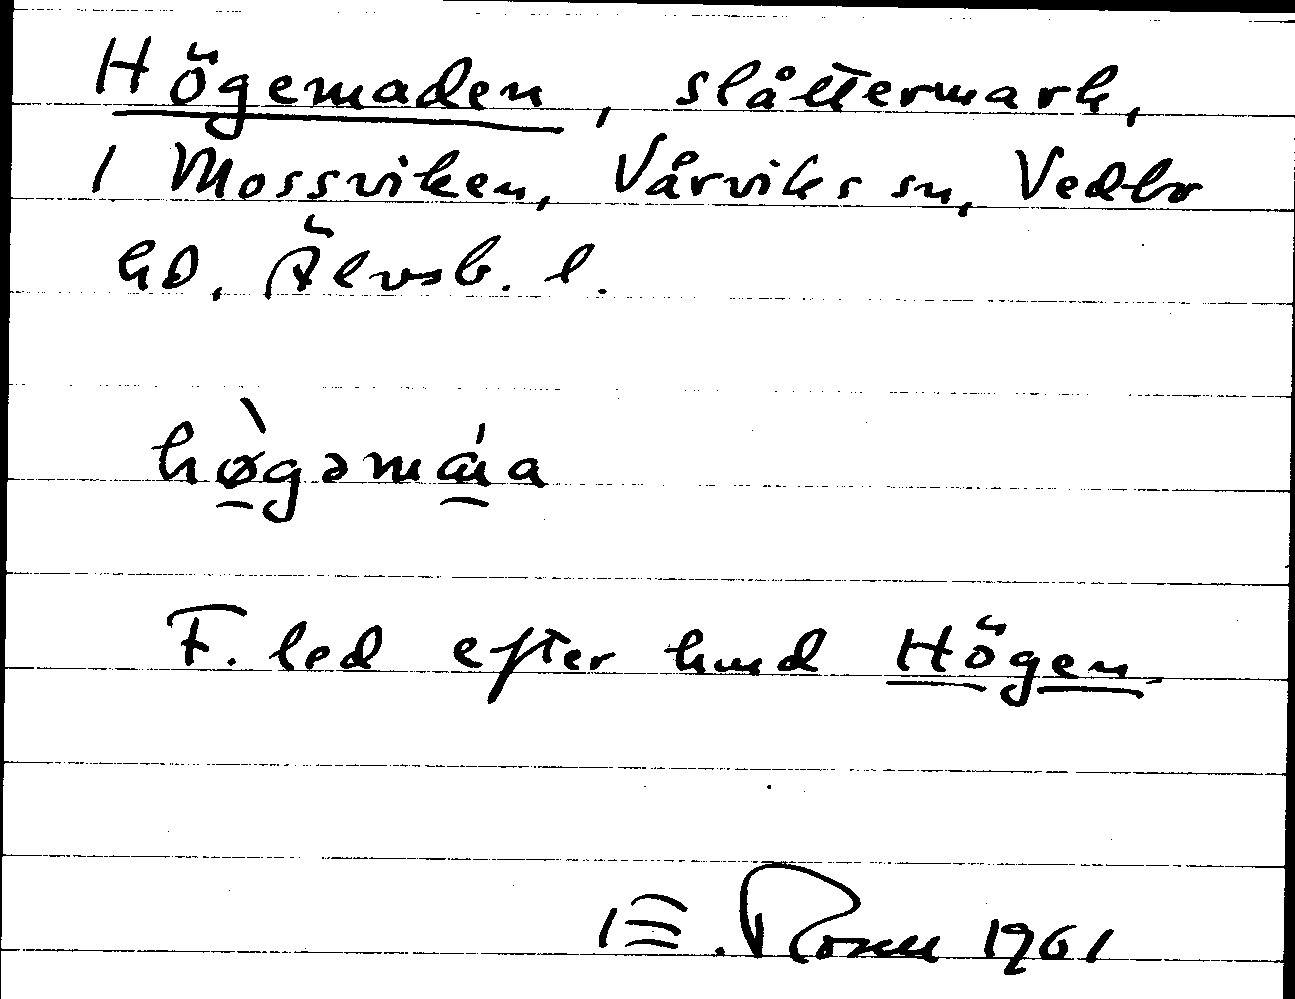 Högemaden, slåttermark,
1 Mossviken, Vårviks sn, Vedbo
hd, Älvsb. l.
hø̀gəmáa
F. led efter hmd Högen.
E. Rosell 1961